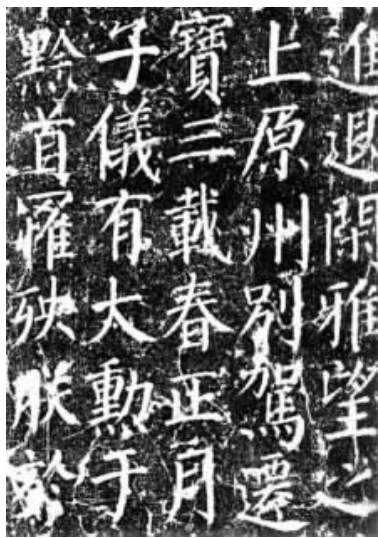 進退閑雅望之
上原州別駕遷
寶三載春正月
子儀有大勳于
黔首罹殃朕